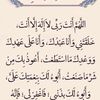 اللَّهُمَّ أَنْتَ رَبِّي لَا إِلَهَ إِلَّا أَنْتَ،
خَلَقْتَنِي وَأَنَا عَبْدُكَ، وَأَنَا عَلَى عَهْدِكَ
وَوَعْدِكَ مَا اسْتَطَعْتُ، أَعُوذُ بِكَ مِنْ
شَرِّ مَا صَنَعْتُ، أَبُوءُ لَكَ بِنِعْمَتِكَ عَلَيَّ،
وَأَبُوءُ لَكَ بِذَنْبِي فَاغْفِرْ لِي، فَإِنَّهُ